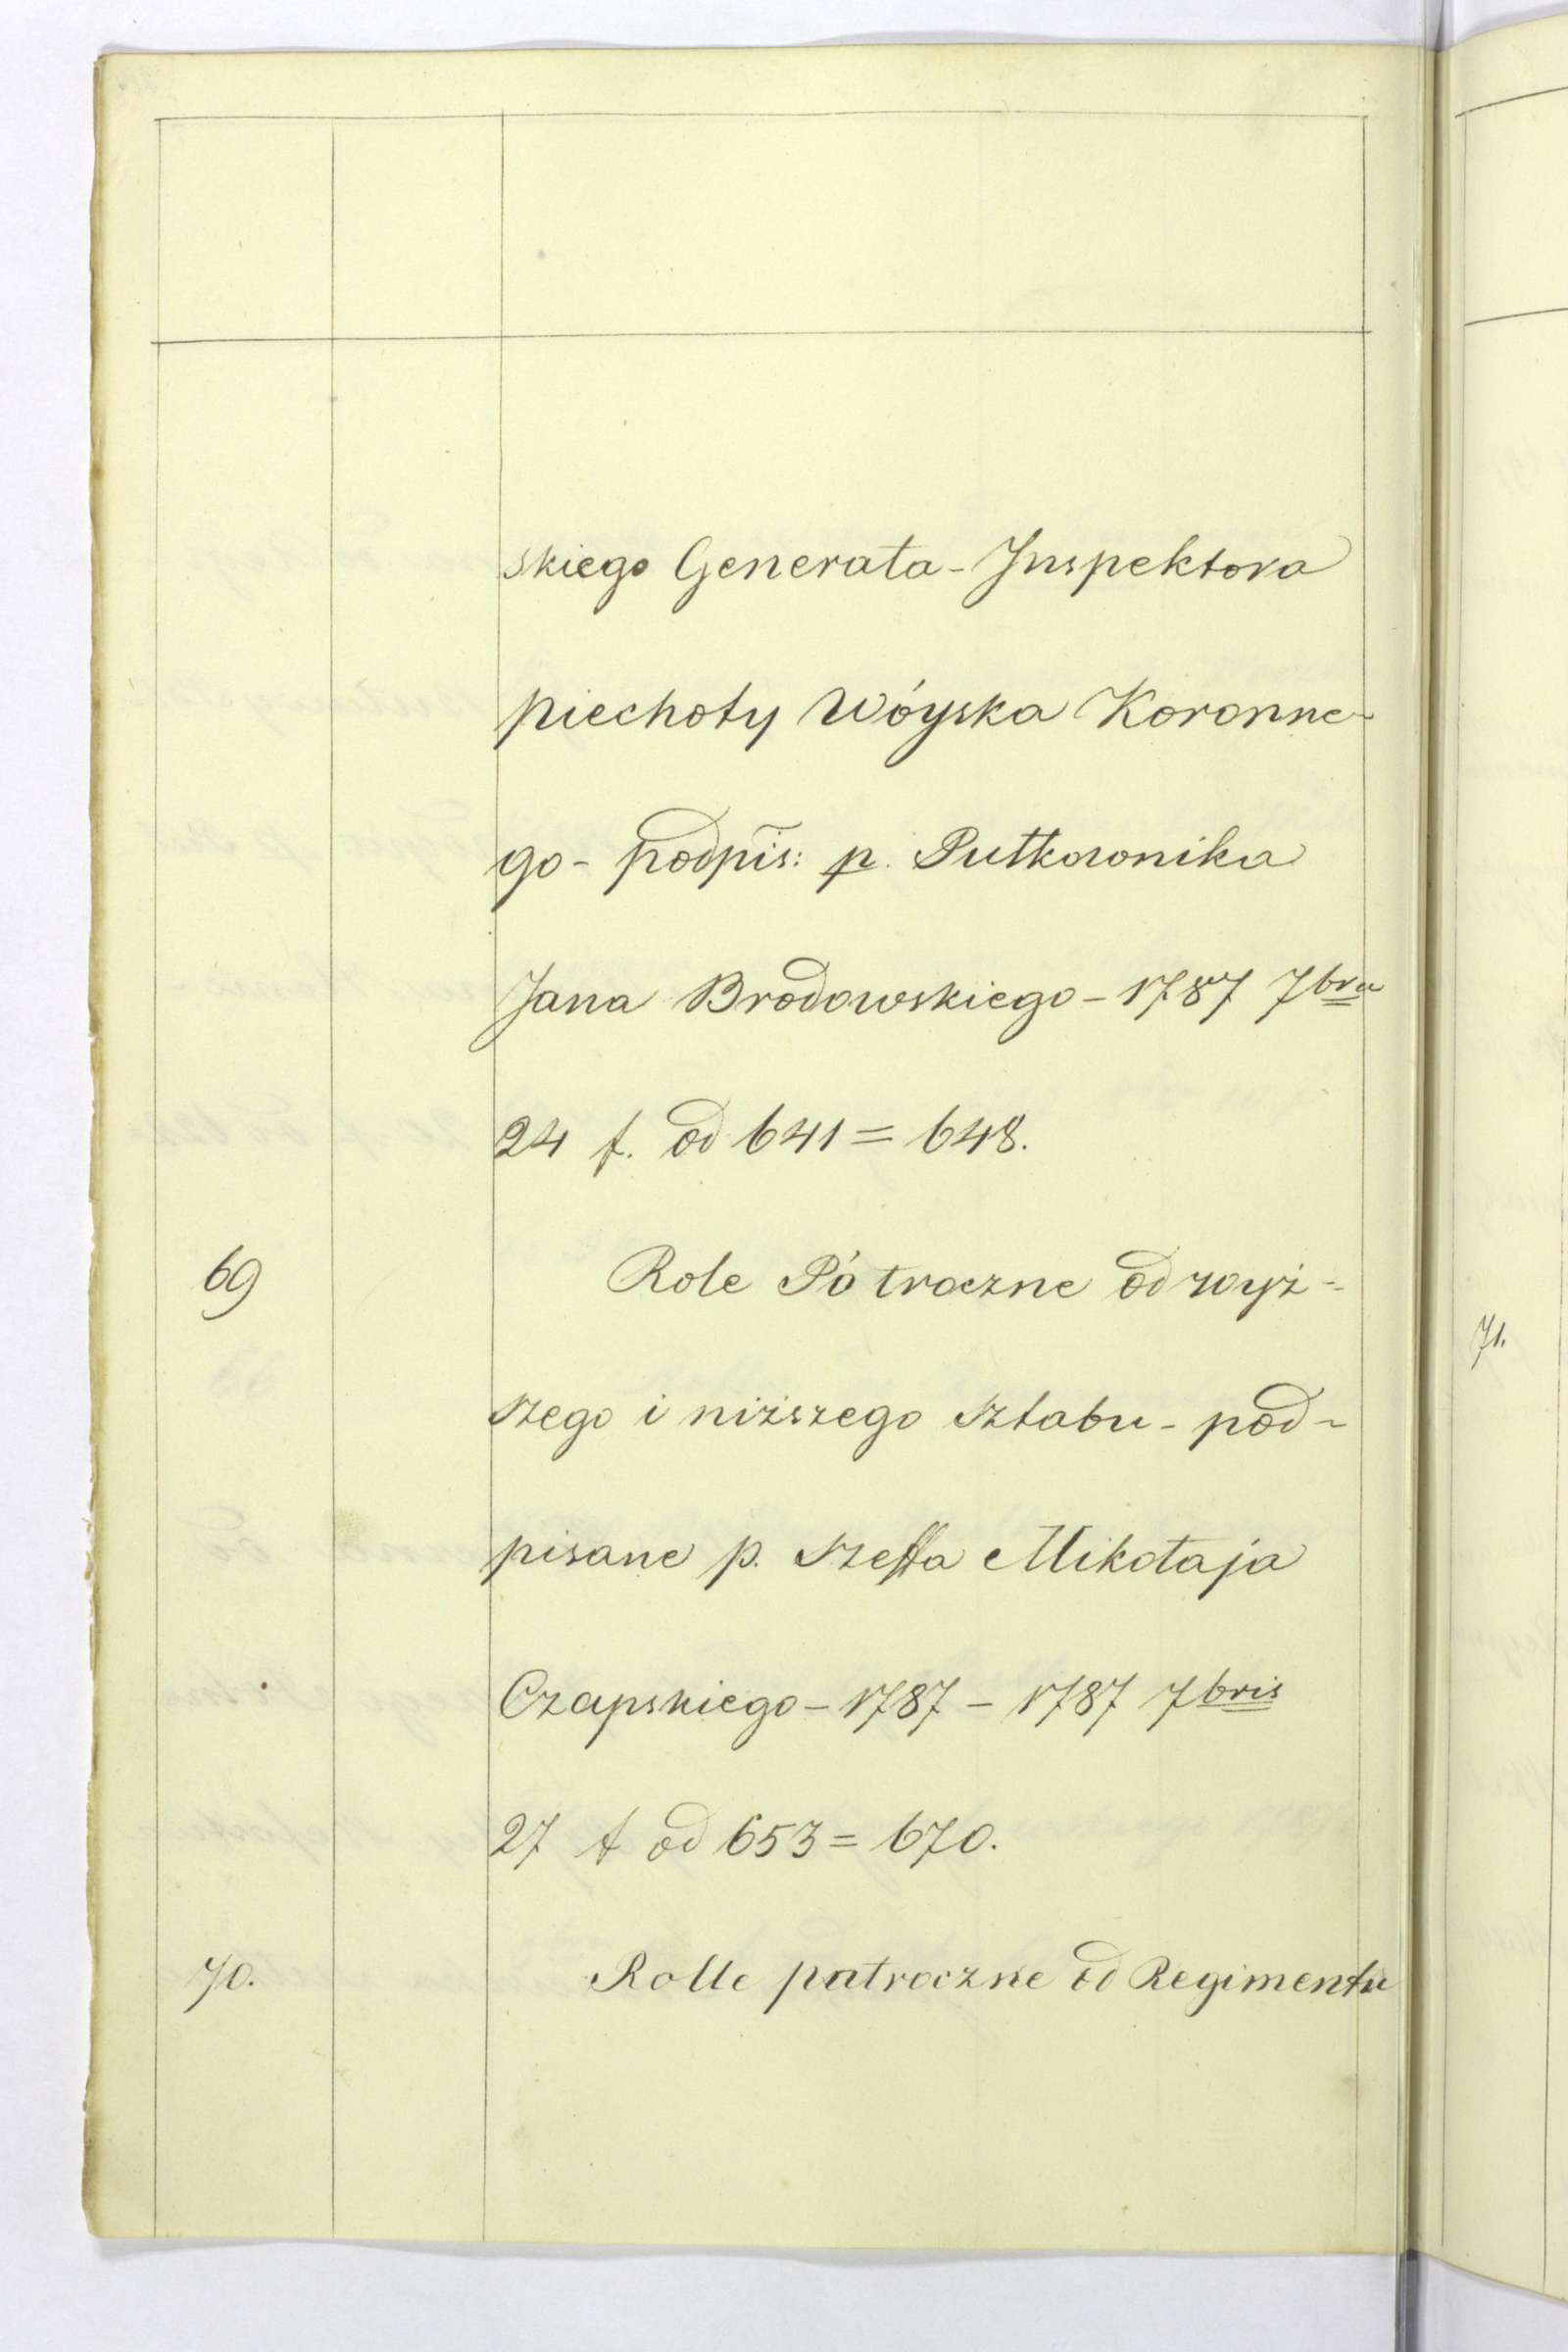 skiego Generała-Inspektora
piechoty Wóyska Koronne-
go - podpis: p. Pułkownika
Jana Brodowskiego - 1787 7bra
24 f. od 641 = 648.
69 Role Półroczne od wyż-
szego i niższego sztabu - pod-
pisane p. Szeffa Mikołaja
Czapskiego - 1787 - 1787 7bris
27 f od 653 = 670.
70. Rolle półroczne od Regimentu
71.